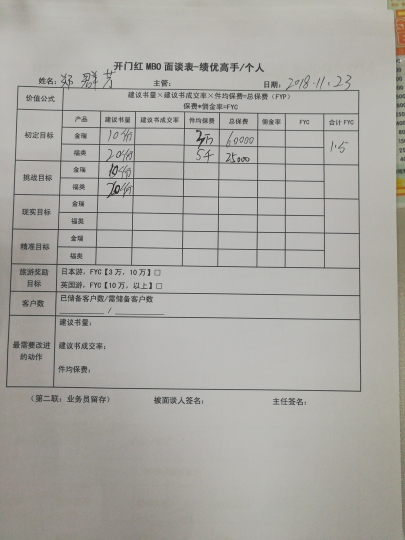 开门红 MBO 面谈表-绩优高手/个人
姓名：郑群芳 主管： 日期：2018.11.23
价值公式 建议书量×建议书成交率×件均保费=总保费（FYP）
保费*佣金率=FYC
产品 建议书量 建议书成交率 件均保费 总保费 佣金率 FYC 合计 FYC
初定目标 金瑞 10份 3万 60000 1.5
福类 20份 5千 25000
挑战目标 金瑞 10份
福类 20份
现实目标 金瑞
福类
精准目标 金瑞
福类
旅游奖励目标 日本游，FYC【3 万，10 万】□
英国游，FYC【10 万，以上】□
客户数 已储备客户数/需储备客户数
/
最需要改进的动作 建议书量：
建议书成交率：
件均保费：
（第二联：业务员留存） 被面谈人签名： 主任签名：